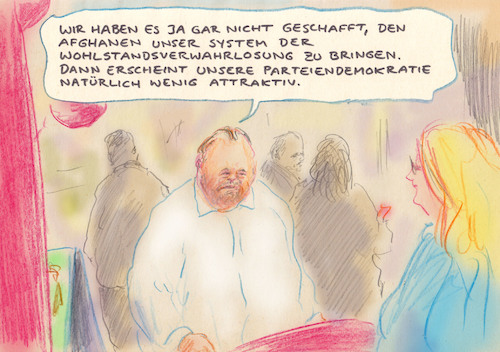 WIR HABEN ES JA GAR NICHT GESCHAFFT, DEN
AFGHANEN UNSER SYSTEM DER
WOHLSTANDSVERWAHRLOSUNG ZU BRINGEN.
DANN ERSCHEINT UNSERE PARTEIENDEMOKRATIE
NATÜRLICH WENIG ATTRAKTIV.